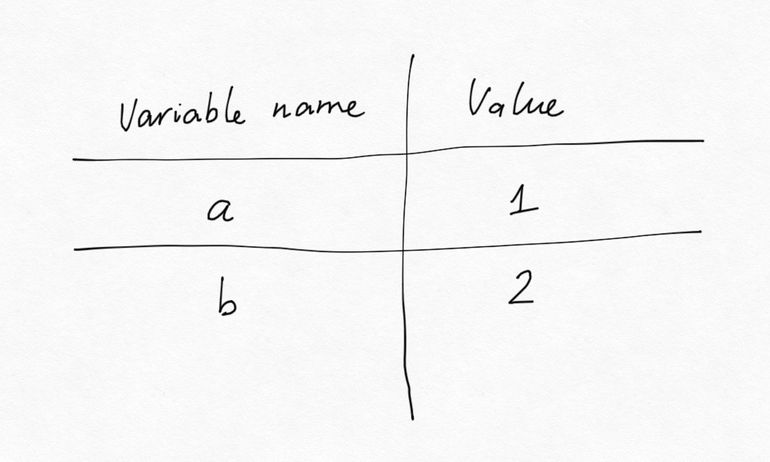 Variable name Value
a 1
b 2